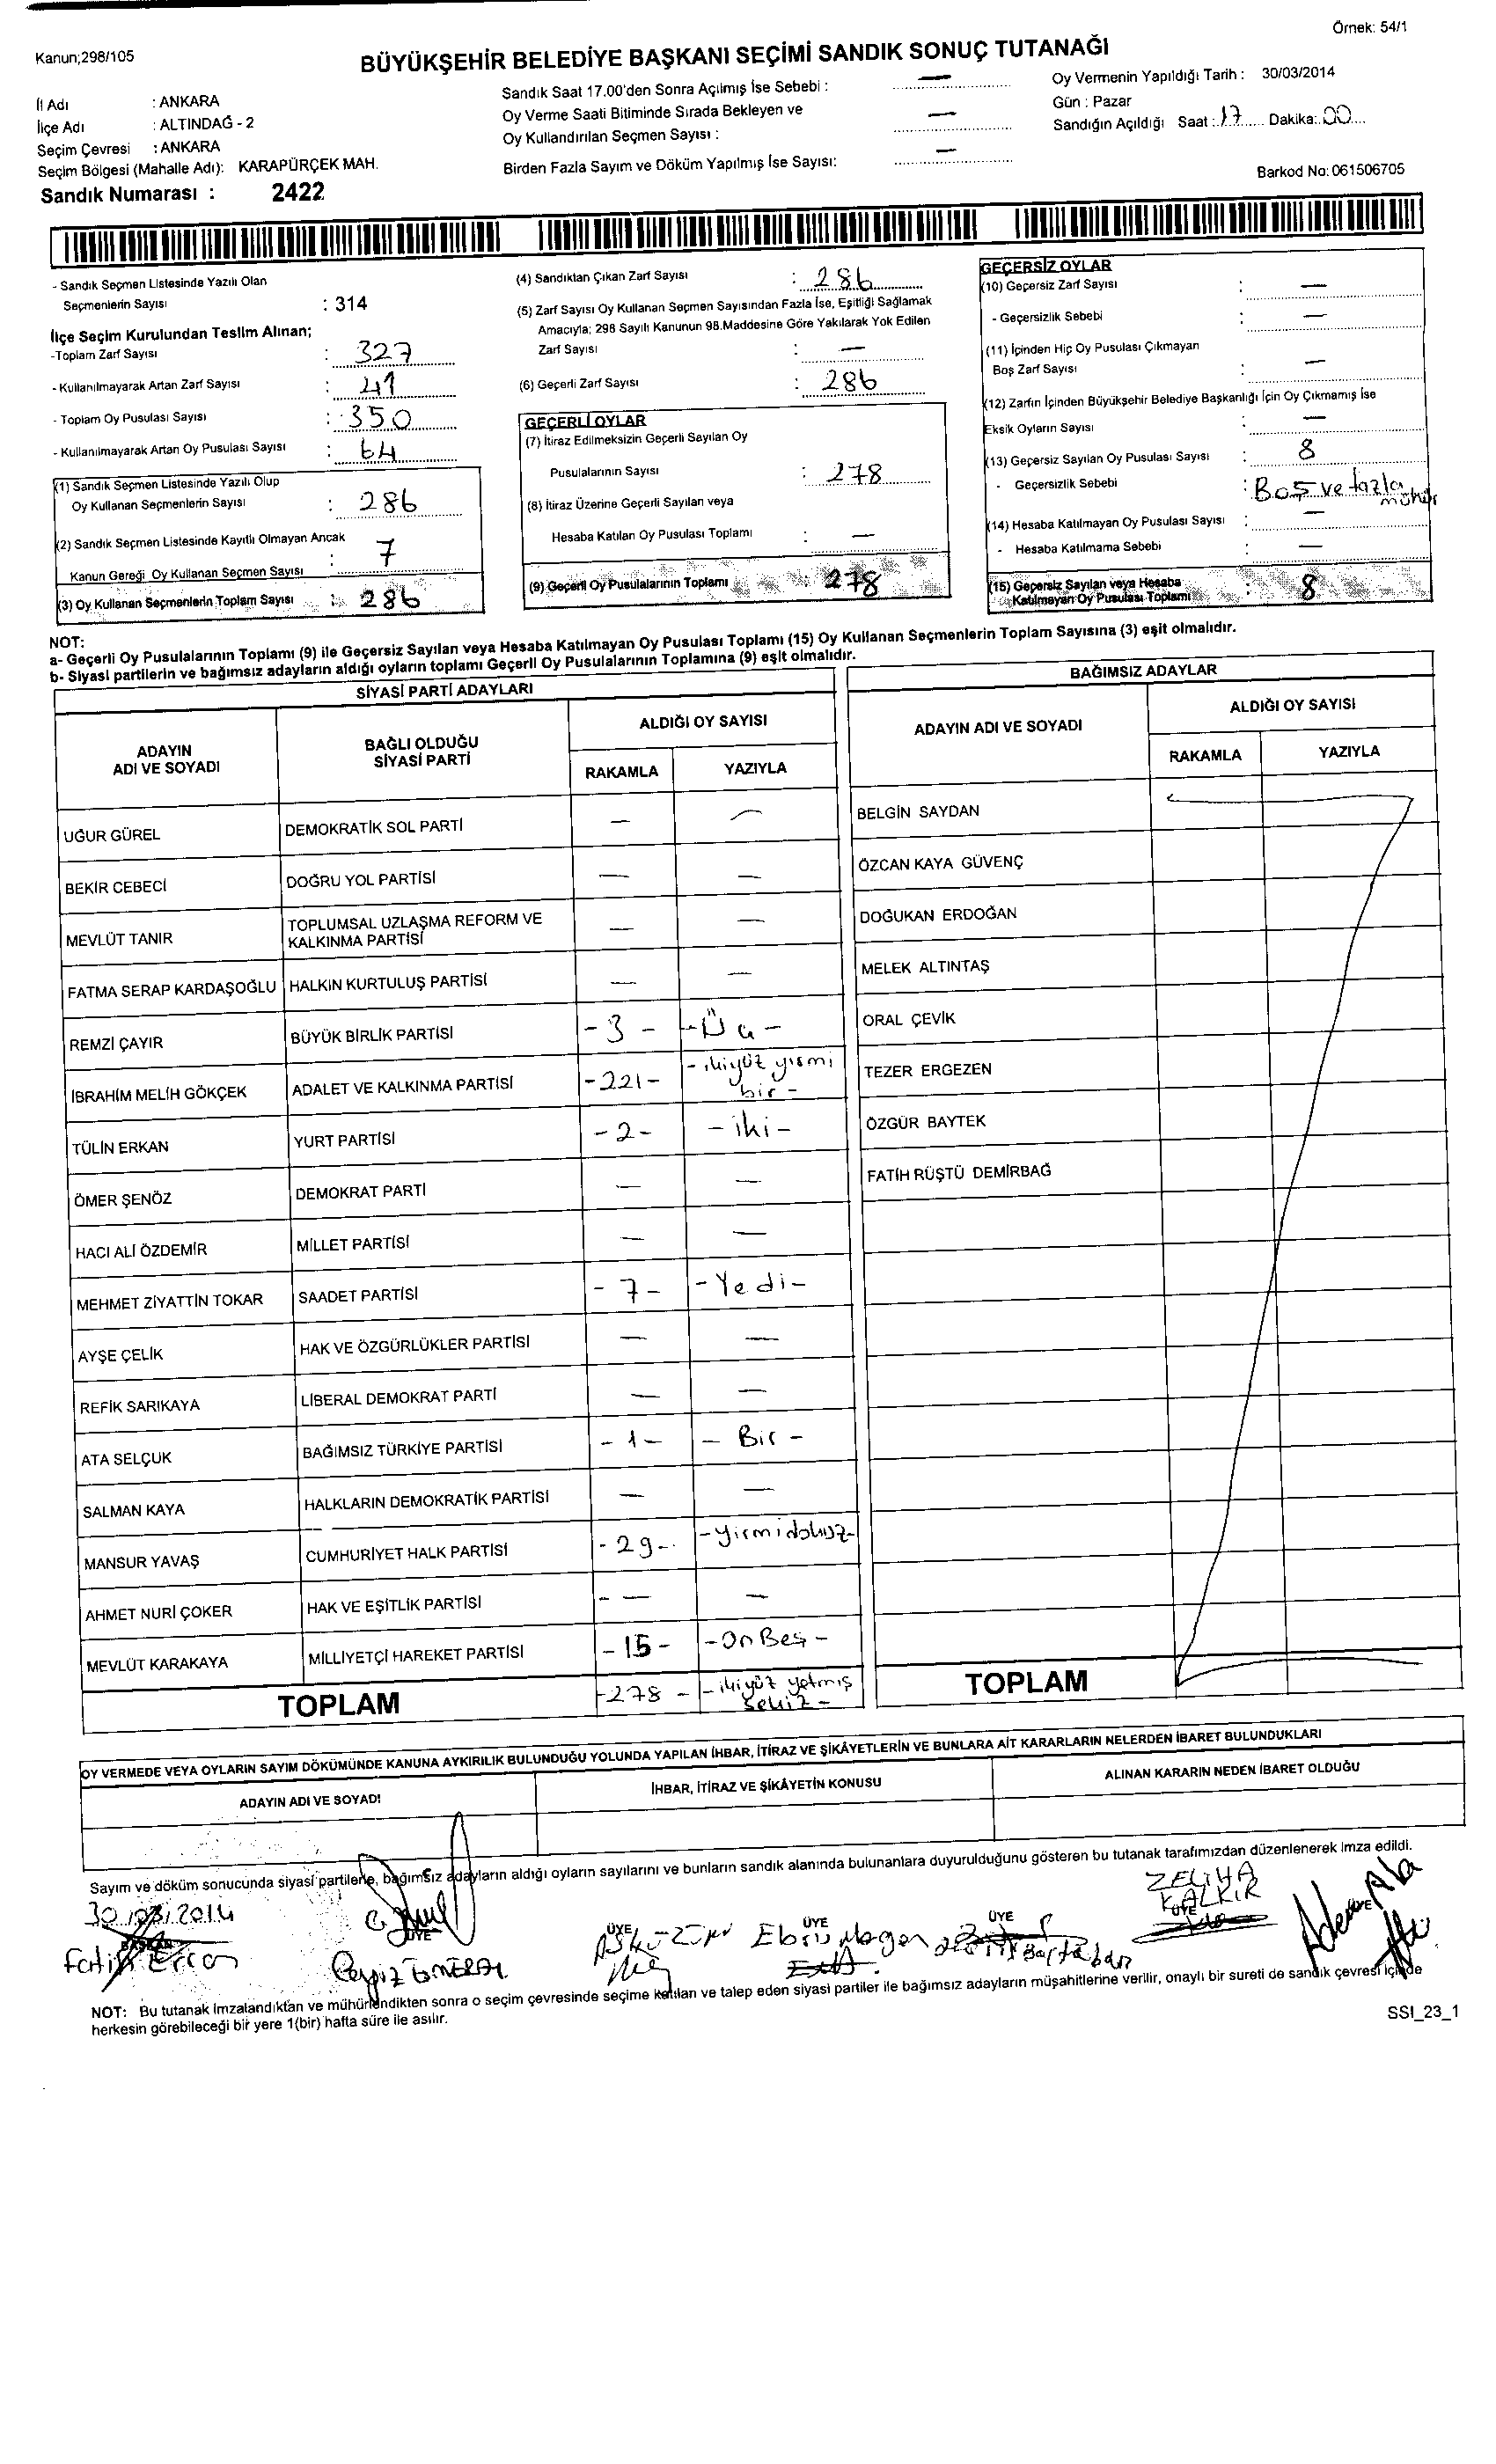 Örnek: 54/1
Kanun;298/105
BÜYÜKŞEHİR BELEDİYE BAŞKANI SEÇİMİ SANDIK SONUÇ TUTANAĞI
İl Adı : ANKARA
İlçe Adı : ALTINDAĞ - 2
Seçim Çevresi : ANKARA
Seçim Bölgesi (Mahalle Adı): KARAPÜRÇEK MAH.
Sandık Numarası : 2422
Sandık Saat 17.00'den Sonra Açılmış İse Sebebi : —
Oy Verme Saati Bitiminde Sırada Bekleyen ve
Oy Kullandırılan Seçmen Sayısı : —
Birden Fazla Sayım ve Döküm Yapılmış İse Sayısı: —
Oy Vermenin Yapıldığı Tarih : 30/03/2014
Gün : Pazar
Sandığın Açıldığı Saat : 17 Dakika: 00
Barkod No: 061506705
- Sandık Seçmen Listesinde Yazılı Olan
Seçmenlerin Sayısı : 314
İlçe Seçim Kurulundan Teslim Alınan;
-Toplam Zarf Sayısı : 327
- Kullanılmayarak Artan Zarf Sayısı : 41
- Toplam Oy Pusulası Sayısı : 350
- Kullanılmayarak Artan Oy Pusulası Sayısı : 64
(1) Sandık Seçmen Listesinde Yazılı Olup
Oy Kullanan Seçmenlerin Sayısı : 286
(2) Sandık Seçmen Listesinde Kayıtlı Olmayan Ancak
Kanun Gereği Oy Kullanan Seçmen Sayısı : 7
(3) Oy Kullanan Seçmenlerin Toplam Sayısı : 286
(4) Sandıktan Çıkan Zarf Sayısı : 286
(5) Zarf Sayısı Oy Kullanan Seçmen Sayısından Fazla İse, Eşitliği Sağlamak
Amacıyla; 298 Sayılı Kanunun 98.Maddesine Göre Yakılarak Yok Edilen
Zarf Sayısı : —
(6) Geçerli Zarf Sayısı : 286
GEÇERLİ OYLAR
(7) İtiraz Edilmeksizin Geçerli Sayılan Oy
Pusulalarının Sayısı : 278
(8) İtiraz Üzerine Geçerli Sayılan veya
Hesaba Katılan Oy Pusulası Toplamı : —
(9) Geçerli Oy Pusulalarının Toplamı : 278
GEÇERSİZ OYLAR
(10) Geçersiz Zarf Sayısı : —
- Geçersizlik Sebebi : —
(11) İçinden Hiç Oy Pusulası Çıkmayan
Boş Zarf Sayısı : —
(12) Zarfın İçinden Büyükşehir Belediye Başkanlığı İçin Oy Çıkmamış İse
Eksik Oyların Sayısı : —
(13) Geçersiz Sayılan Oy Pusulası Sayısı : 8
- Geçersizlik Sebebi : Boş ve fazla mühür
(14) Hesaba Katılmayan Oy Pusulası Sayısı : —
- Hesaba Katılmama Sebebi : —
(15) Geçersiz Sayılan veya Hesaba
Katılmayan Oy Pusulası Toplamı : 8
NOT:
a- Geçerli Oy Pusulalarının Toplamı (9) ile Geçersiz Sayılan veya Hesaba Katılmayan Oy Pusulası Toplamı (15) Oy Kullanan Seçmenlerin Toplam Sayısına (3) eşit olmalıdır.
b- Siyasi partilerin ve bağımsız adayların aldığı oyların toplamı Geçerli Oy Pusulalarının Toplamına (9) eşit olmalıdır.
SİYASİ PARTİ ADAYLARI
ADAYIN ADI VE SOYADI BAĞLI OLDUĞU SİYASİ PARTİ ALDIĞI OY SAYISI
RAKAMLA YAZIYLA
UĞUR GÜREL DEMOKRATİK SOL PARTİ — —
BEKİR CEBECİ DOĞRU YOL PARTİSİ — —
MEVLÜT TANIR TOPLUMSAL UZLAŞMA REFORM VE KALKINMA PARTİSİ — —
FATMA SERAP KARDAŞOĞLU HALKIN KURTULUŞ PARTİSİ — —
REMZİ ÇAYIR BÜYÜK BİRLİK PARTİSİ - 3 - - Üç -
İBRAHİM MELİH GÖKÇEK ADALET VE KALKINMA PARTİSİ -221- - ikiyüz yirmi bir -
TÜLİN ERKAN YURT PARTİSİ - 2 - - iki -
ÖMER ŞENÖZ DEMOKRAT PARTİ — —
HACI ALİ ÖZDEMİR MİLLET PARTİSİ — —
MEHMET ZİYATTİN TOKAR SAADET PARTİSİ - 7 - - Yedi -
AYŞE ÇELİK HAK VE ÖZGÜRLÜKLER PARTİSİ — —
REFİK SARIKAYA LİBERAL DEMOKRAT PARTİ — —
ATA SELÇUK BAĞIMSIZ TÜRKİYE PARTİSİ - 1 - - Bir -
SALMAN KAYA HALKLARIN DEMOKRATİK PARTİSİ — —
MANSUR YAVAŞ CUMHURİYET HALK PARTİSİ - 29 - - yirmidokuz -
AHMET NURİ ÇOKER HAK VE EŞİTLİK PARTİSİ - — —
MEVLÜT KARAKAYA MİLLİYETÇİ HAREKET PARTİSİ - 15 - - OnBeş -
TOPLAM -278 - - ikiyüz yetmiş sekiz -
BAĞIMSIZ ADAYLAR
ADAYIN ADI VE SOYADI ALDIĞI OY SAYISI
RAKAMLA YAZIYLA
BELGİN SAYDAN
ÖZCAN KAYA GÜVENÇ
DOĞUKAN ERDOĞAN
MELEK ALTINTAŞ
ORAL ÇEVİK
TEZER ERGEZEN
ÖZGÜR BAYTEK
FATİH RÜŞTÜ DEMİRBAĞ
TOPLAM
OY VERMEDE VEYA OYLARIN SAYIM DÖKÜMÜNDE KANUNA AYKIRILIK BULUNDUĞU YOLUNDA YAPILAN İHBAR, İTİRAZ VE ŞİKÂYETLERİN VE BUNLARA AİT KARARLARIN NELERDEN İBARET BULUNDUKLARI
ADAYIN ADI VE SOYADI İHBAR, İTİRAZ VE ŞİKÂYETİN KONUSU ALINAN KARARIN NEDEN İBARET OLDUĞU
Sayım ve döküm sonucunda siyasi partilerle, bağımsız adayların aldığı oyların sayılarını ve bunların sandık alanında bulunanlara duyurulduğunu gösteren bu tutanak tarafımızdan düzenlenerek imza edildi.
30/03/2014
BAŞKAN ÜYE ÜYE ÜYE ÜYE ÜYE ÜYE
Fatih Ercan
ZELİHA
KALKIR
NOT: Bu tutanak imzalandıktan ve mühürlendikten sonra o seçim çevresinde seçime katılan ve talep eden siyasi partiler ile bağımsız adayların müşahitlerine verilir, onaylı bir sureti de sandık çevresi içinde
herkesin görebileceği bir yere 1(bir) hafta süre ile asılır.
SSI_23_1